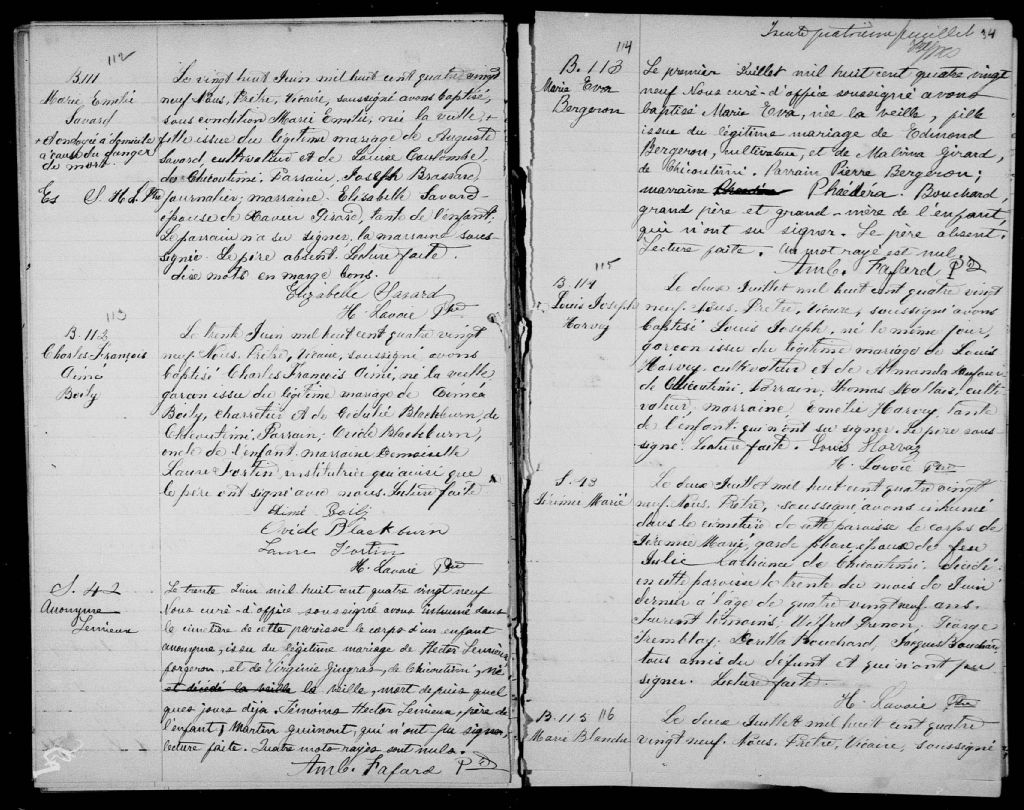 112
B 111
Marie Emélie
Savard
+ et ondoyée à domicile
à cause du danger
de mort.
Es S. H. L. Ptre
Le vingt huit Juin mil huit cent quatre vingt
neuf Nous, Prêtre, Vicaire, soussigné avons baptisé,
sous condition Marie Emélie, née la veille, +
fille issue du légitime mariage de Auguste
Savard, cultivateur et de Louise
de Chicoutimi. Parrain, Joseph Brassard
journalier, marraine, Elisabeth Savard
épouse de Xavier Girard, tante de l'enfant.
Le parrain n'a su signer, la marraine sous-
signée. Le père absent. Lecture faite.
dix mots en marge bons.
Elizabelle Savard
H. Lavoie Ptre
113
B. 112
Charles-François
Aimé
Boily
Le trente Juin mil huit cent quatre vingt
neuf. Nous, Prêtre, Vicaire, soussigné avons
baptisé Charles François Aimé, né la veille
garçon issu du légitime mariage de Aimé
Boily, charretier et de Blackburn, de
Chicoutimi, Parrain, Ovide Blackburn,
oncle de l'enfant, marraine Demoiselle
Laure Fortin, institutrice qui ainsi que
le père ont signé avec nous. Lecture faite
Aimé Boily
Ovide Blackburn
Laure Fortin
H. Lavoie Ptre
S. 42
Anonyme
Lemieux
Le trente Juin mil huit cent quatre vingt neuf
Nous curé-d'office soussigné avons inhumé dans
le cimetière de cette paroisse le corps d'un enfant
anonyme, issu du légitime mariage de Hector Lemieux,
forgeron, et de Virginie Gingras, de Chicoutimi, né
et décédé la veille la veille, mort depuis quel
ques jours déjà. Témoins Hector Lemieux, père de
l'enfant & Martin Guimont, qui n'ont pu signer
lecture faite. Quatre mots rayés sont nuls.
Amb. Fafard Ptre
Trente quatrième feuillet 34
114
B. 113
Marie Eva
Bergeron
Le premier Juillet mil huit cent quatre vingt
neuf Nous curé-d'office soussigné avons
baptisé Marie Eva, née la veille, fille
issue du légitime mariage de Edmond
Bergeron, cultivateur, et de Malvina Girard,
de Chicoutimi. Parrain Pierre Bergeron;
marraine Phaédéra Bouchard,
grand père et grand-mère de l'enfant,
qui n'ont su signer. Le père absent.
Lecture faite. Un mot rayé est nul.
Amb. Fafard Ptre
115
B. 114
Louis Joseph
Harvey
Le deux Juillet mil huit cent quatre vingt
neuf. Nous, Prêtre, Vicaire, soussigné avons
baptisé Louis Joseph, né le même jour,
garçon issu du légitime mariage de Louis
Harvey cultivateur et de Almanda
de Chicoutimi, Parrain: Thomas Maltais, culti-
vateur, marraine, Emélie Harvey, tante
de l'enfant qui n'ont su signer. Le père sous-
signé. Lecture faite. Louis Harvay
H. Lavoie Ptre
S. 43
Jérémie Marié
Le deux Juillet mil huit cent quatre vingt
neuf. Nous, Prêtre, soussigné, avons inhumé
dans le cimetière de cette paroisse le corps de
Jérémie Marié, garde phare, époux de feu
Julie de Chicoutimi. décédé
en cette paroisse le trente du mois de Juin
dernier à l'âge de quatre vingt neuf ans.
Furent témoins, Wilfrid George
Tremblay, Bouchard, Jacques Bouchard,
tous amis du défunt et qui n'ont pu
signer. Lecture faite.
H. Lavoie Ptre
B. 115 116
Marie Blanche
Le deux Juillet mil huit cent quatre
vingt neuf. Nous, Prêtre, Vicaire, soussigné